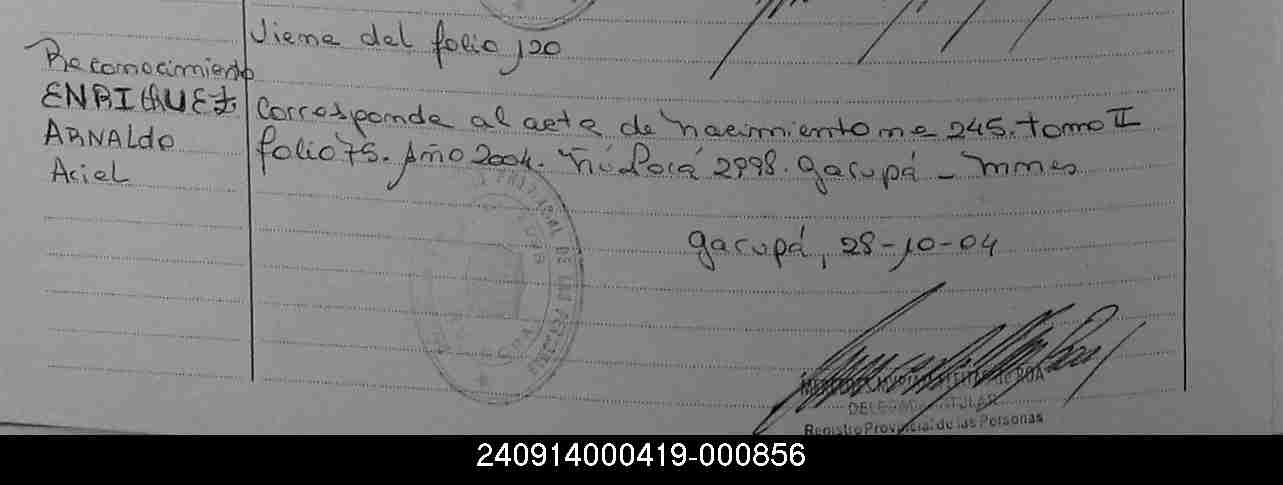 Viene del folio 120
Reconocimiento
ENRIQUEZ
ARNALDO
Ariel
Corresponde al acta de nacimiento no 245. tomo II
folio 75. Año 2004. Ñú Porá 2998. Garupá - Mnes
Garupá, 28-10-04
PROVINCIAL DE LAS PERSONAS
DELEGADA TITULAR
Registro Provincial de las Personas
240914000419-000856